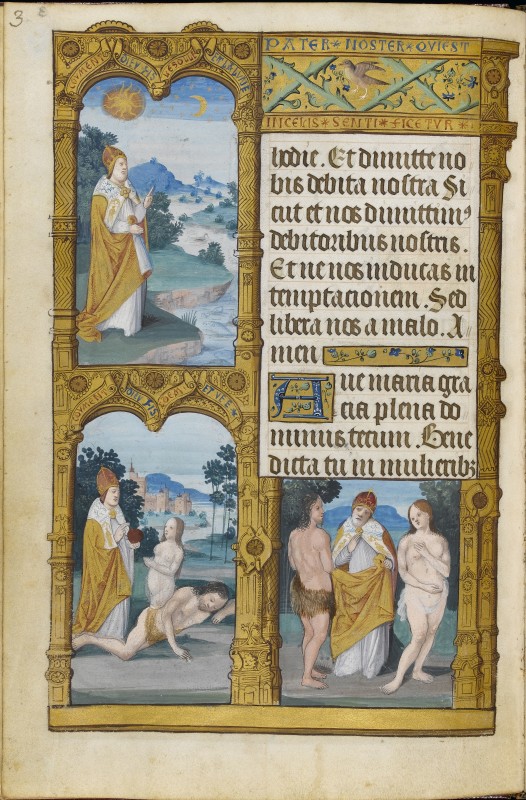 3
PATER * NOSTER * QVI EST
IN CELIS * SENTI * FICETVR *
hodie. Et dimitte no
bis debita nostra Si
cut et nos dimittimꝰ
debitoribus nostris.
Et ne nos inducas in
temptacionem. Sed
libera nos a malo. A
men
Aue maria gra
cia plena do
minus tecum. Bene
dicta tu in mulieribꝫ